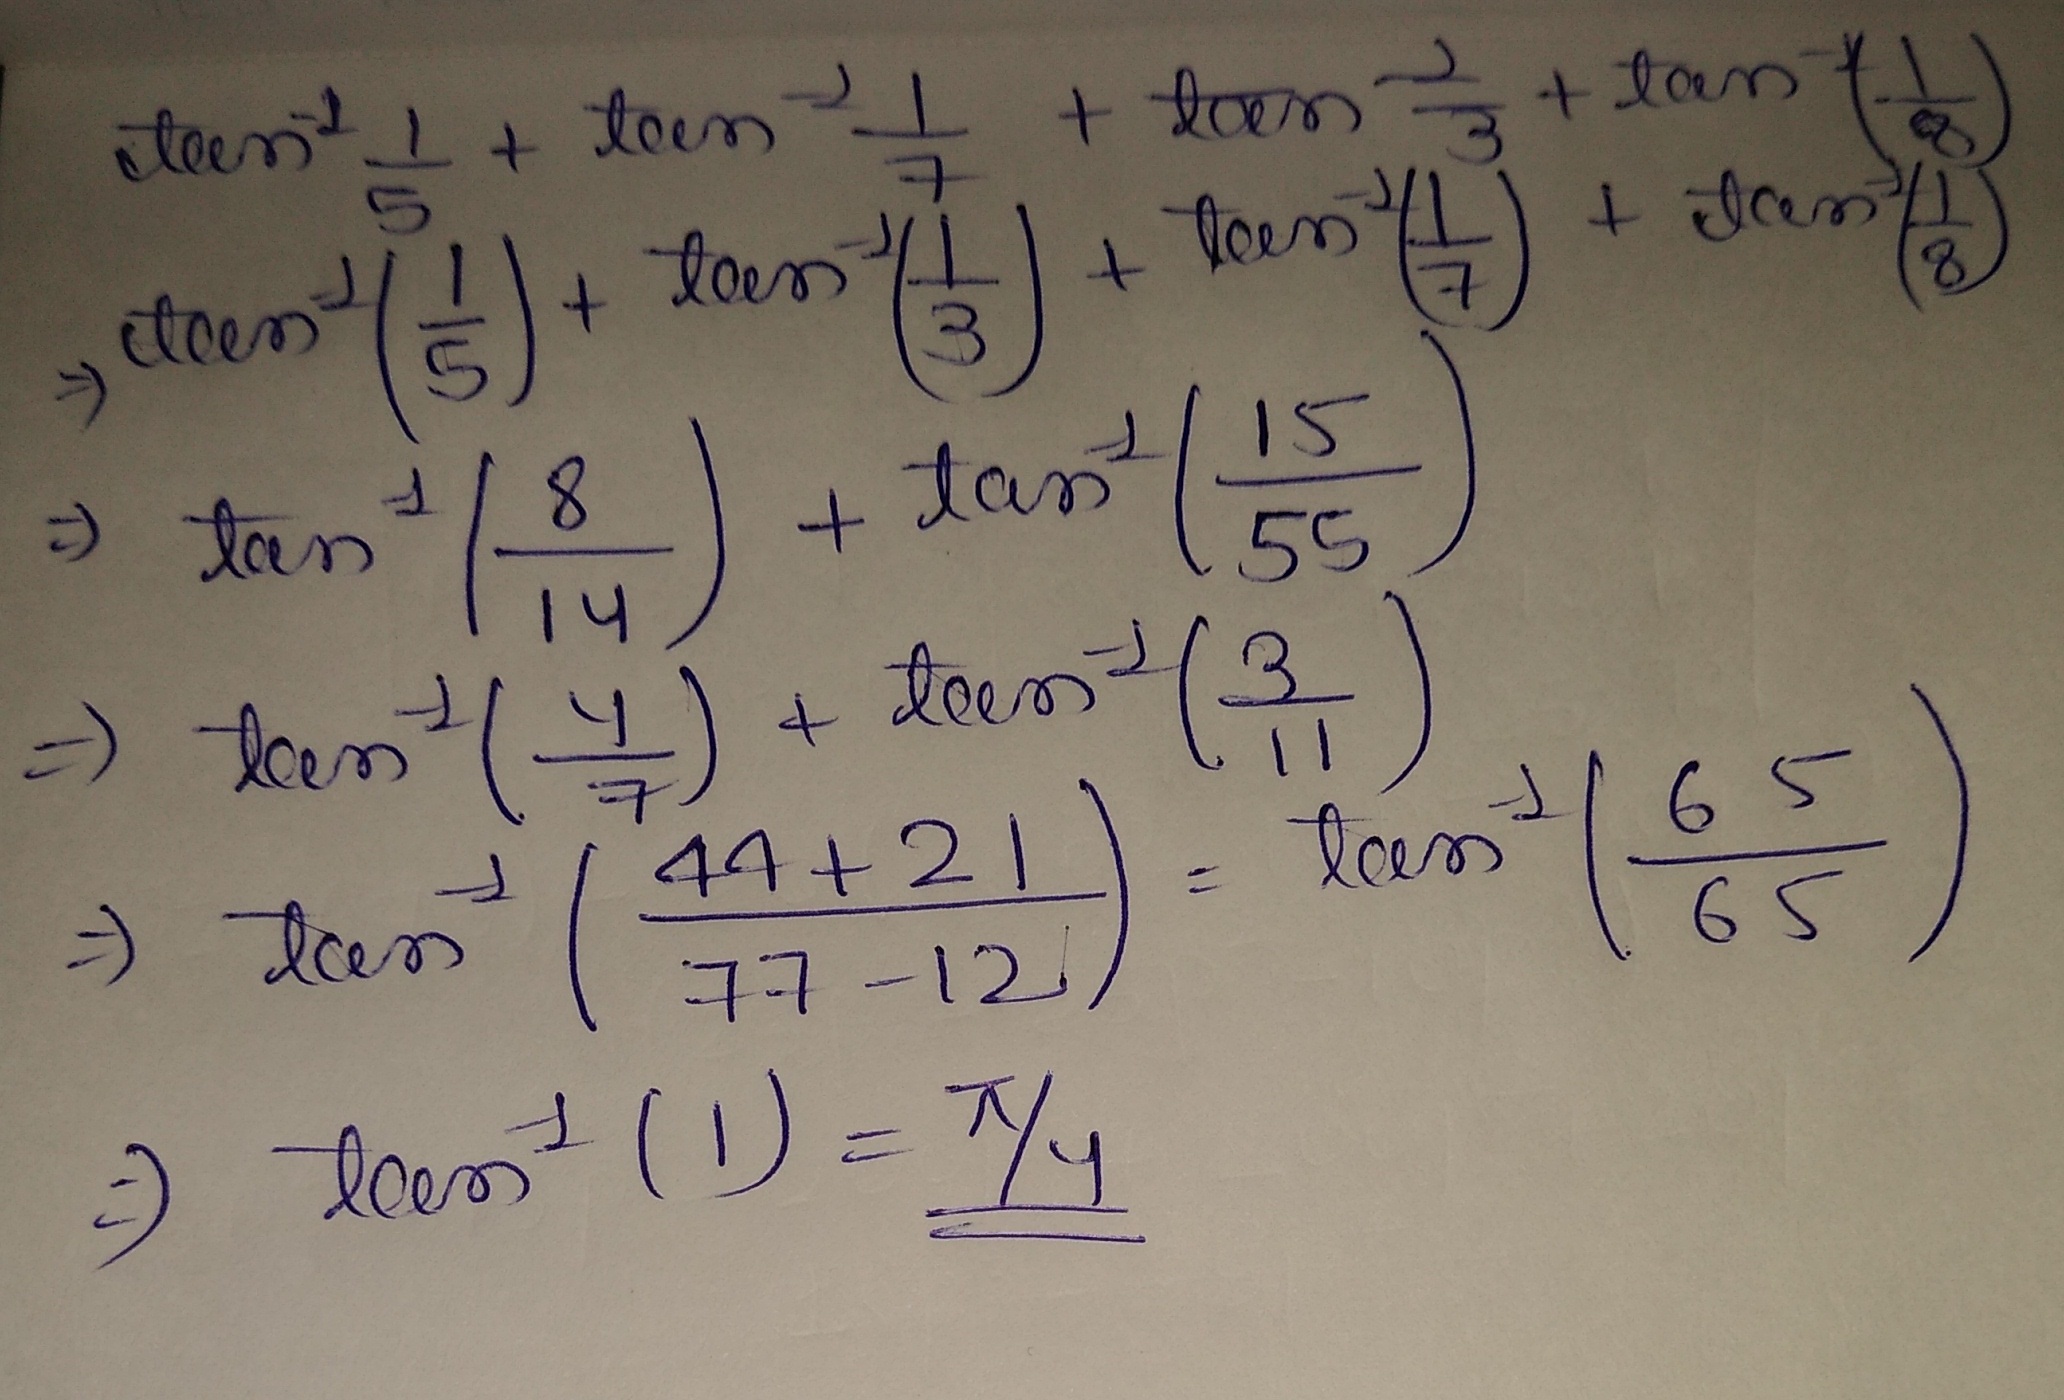 tan⁻¹ 1/5 + tan⁻¹ 1/7 + tan⁻¹ 1/3 + tan⁻¹(1/8)
⇒ tan⁻¹(1/5) + tan⁻¹(1/3) + tan⁻¹(1/7) + tan⁻¹(1/8)
⇒ tan⁻¹(8/14) + tan⁻¹(15/55)
⇒ tan⁻¹(4/7) + tan⁻¹(3/11)
⇒ tan⁻¹((44+21)/(77-12)) = tan⁻¹(65/65)
⇒ tan⁻¹(1) = π/4